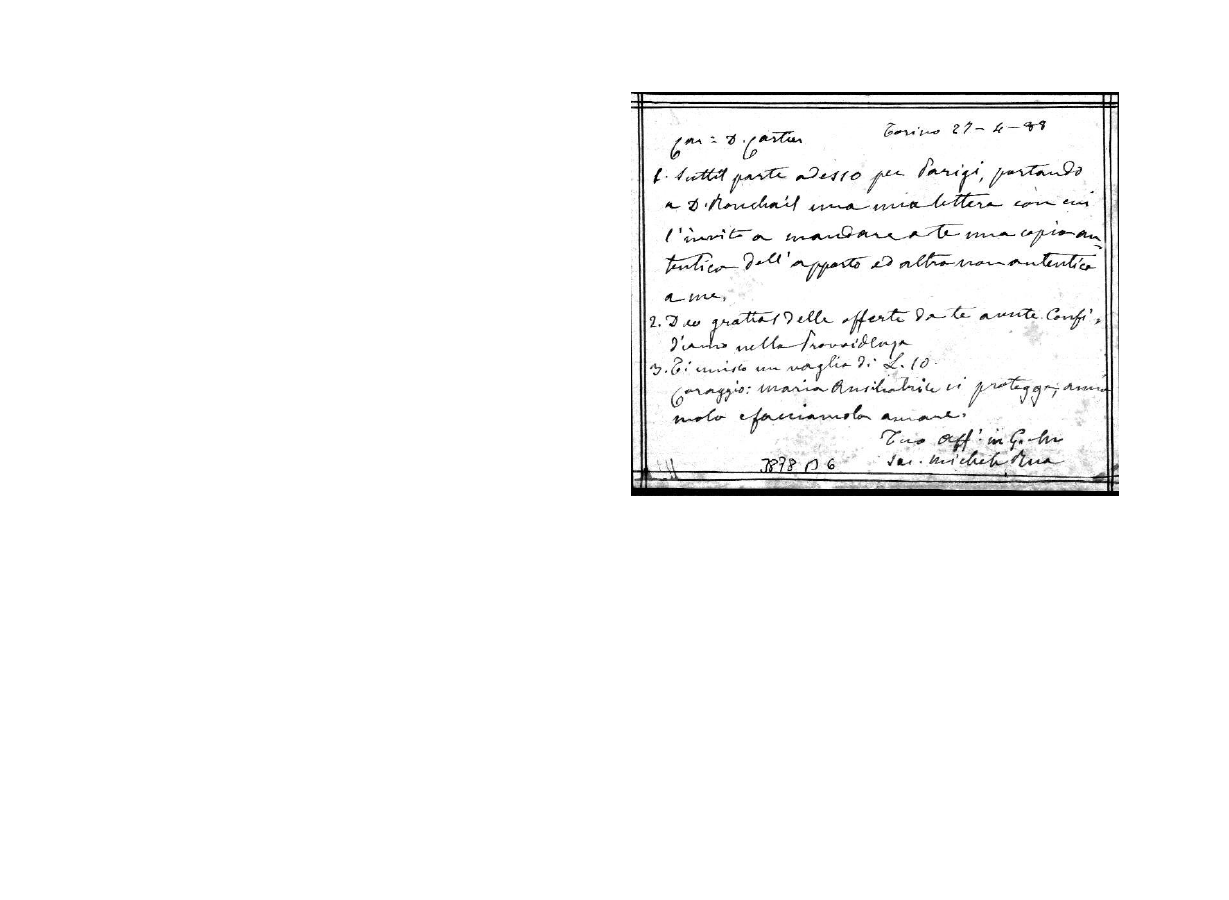 Torino 27-4-88
Car: D. Cartier
1. Suttil parte adesso per Parigi, portando
a D. Ronchail una mia lettera con cui
l'invito a mandare a te una copia au-
tentica dell'apporto ed altra non autentica
a me.
2. Deo gratias delle offerte da te avute. Confi-
diamo nella Provvidenza
3. Ti unisco un vaglia di L. 10.
Coraggio: Maria Ausiliatrice ci protegga; amia
mola e facciamola amare.
Tuo aff. in G.
Sac. Michele Rua
3878 B 6